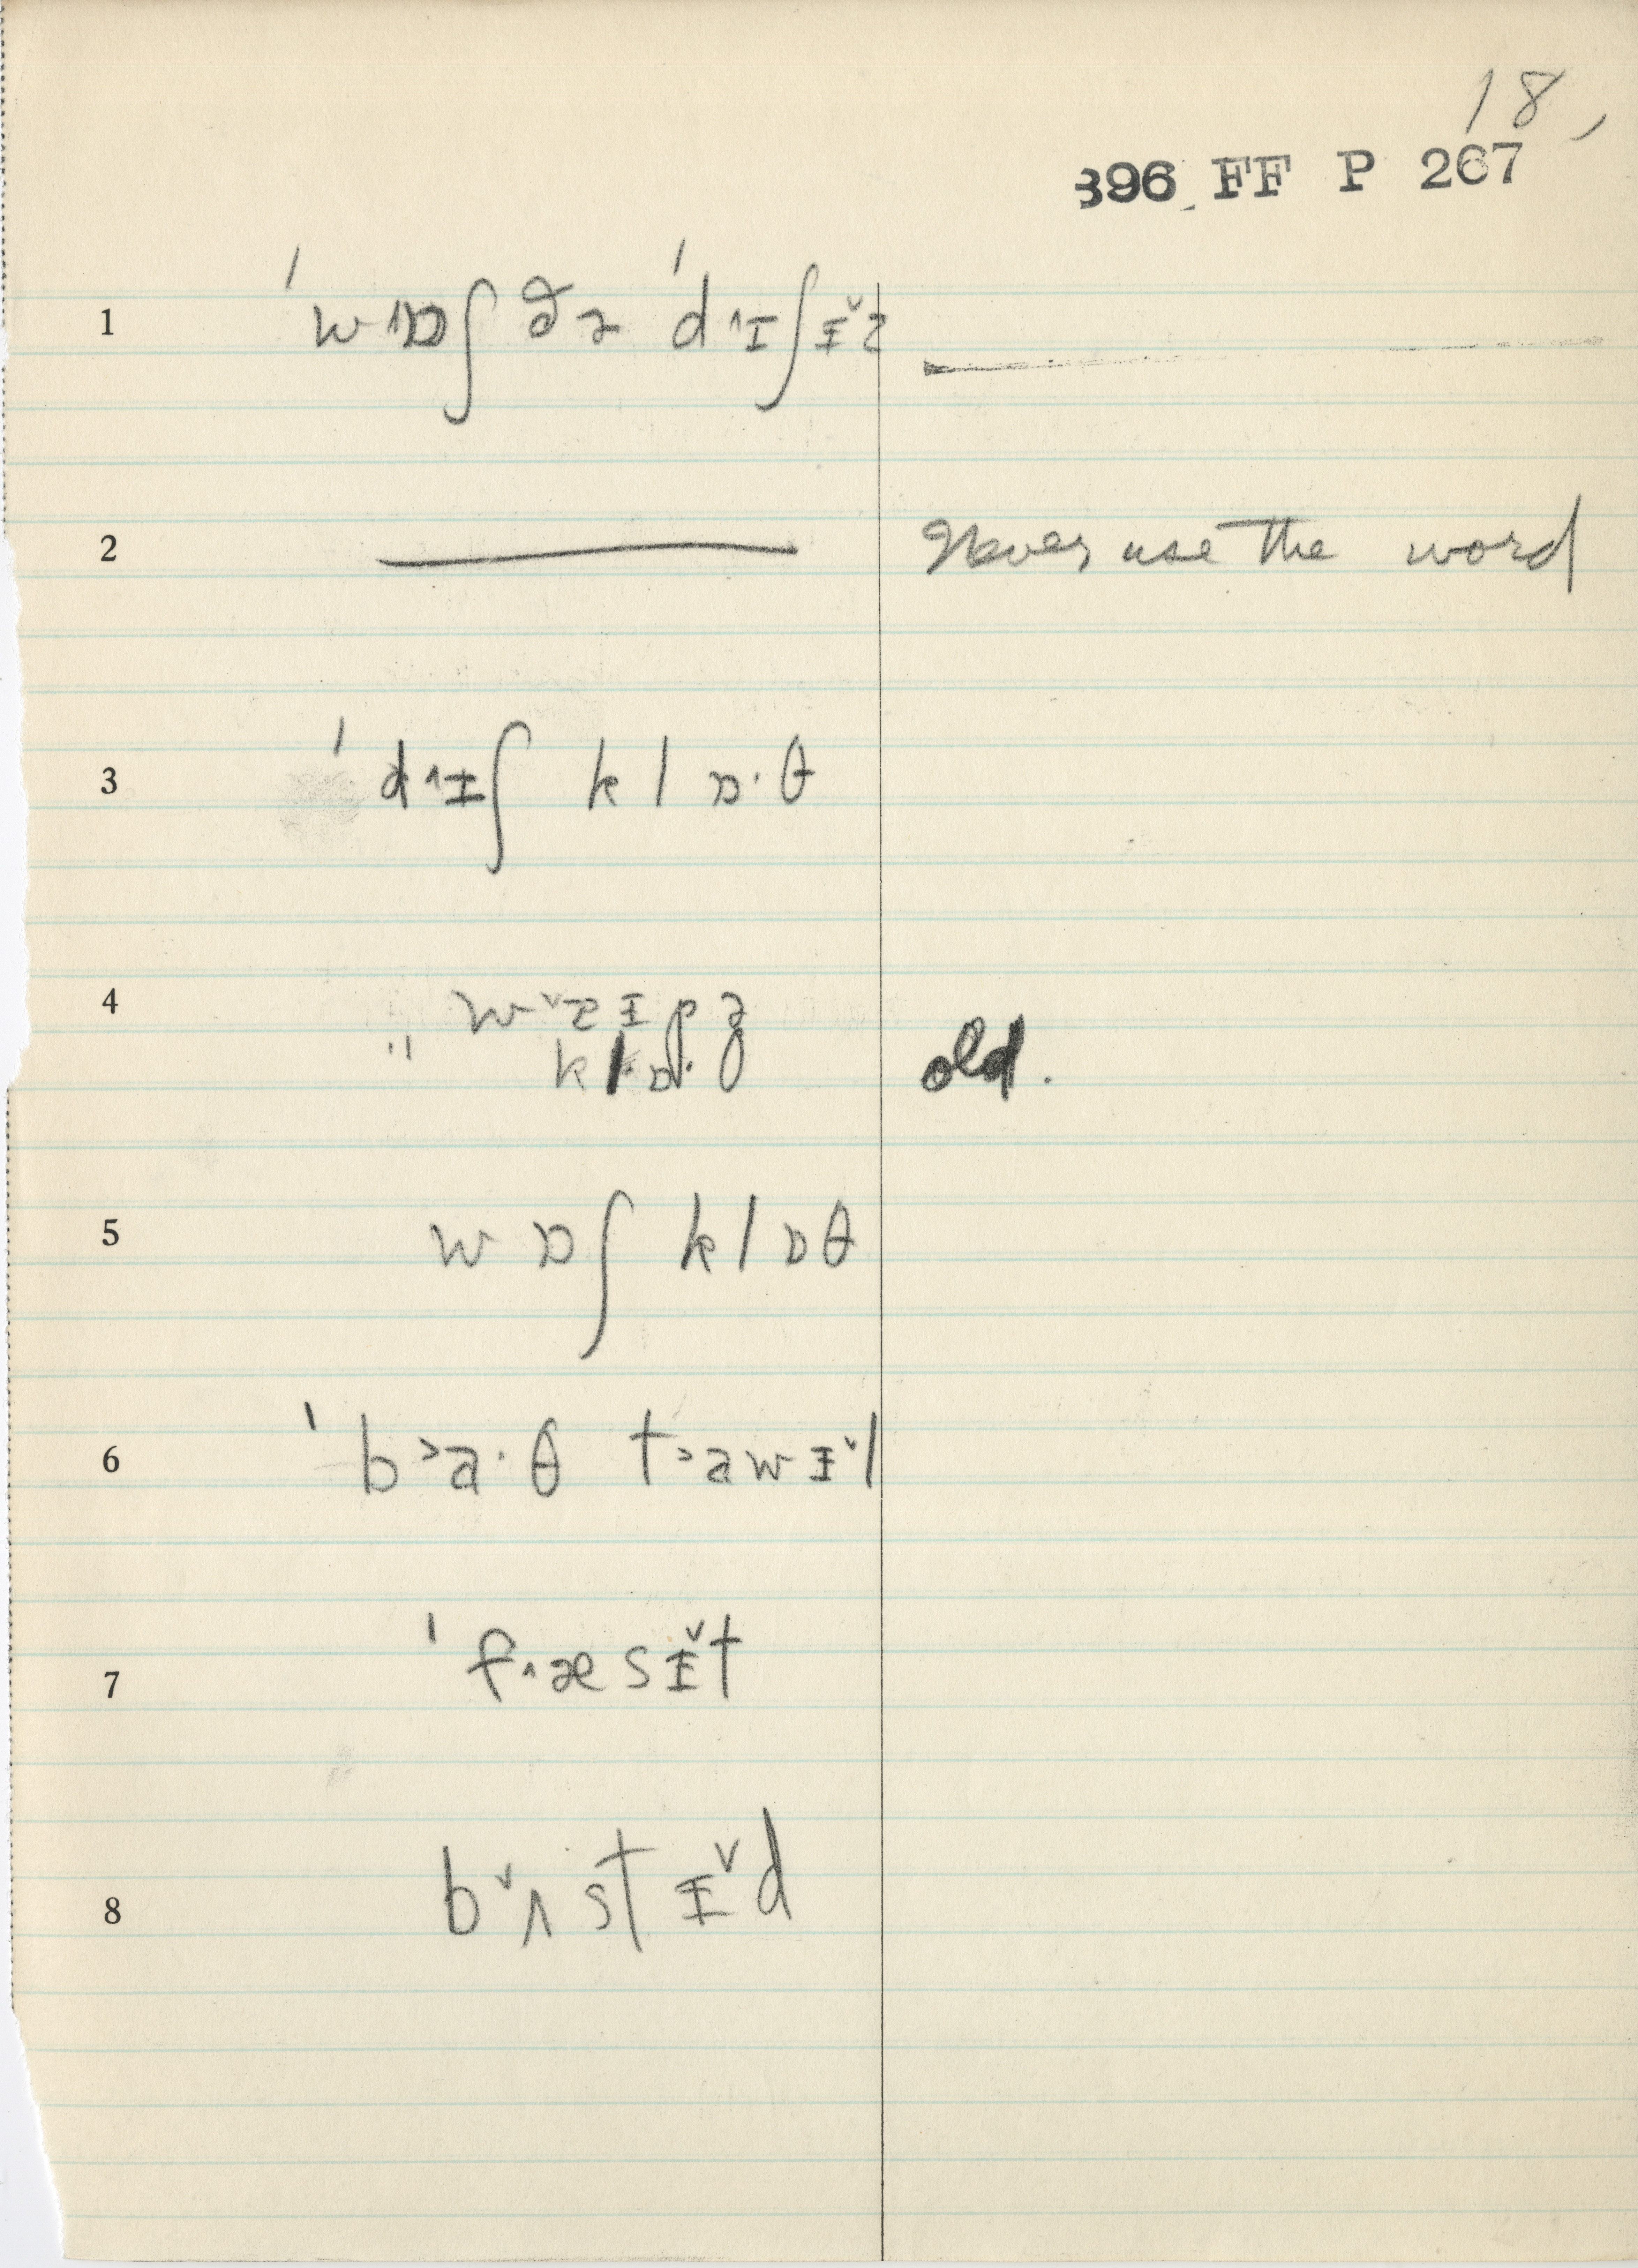 18,
396 FF P 267
1 ˈw˄ɒʃ ðə ˈd˄ɪʃɪ˅z
2 — Never use the word
3 ˈd˄ɪʃ klɒ·θ
4
old.
5 wɒʃ klɒθ
6 ˈb˃a·θ t˃awɪ˅l
7 ˈf˄æsɪ˅t
8 b˅ʌstɪ˅d